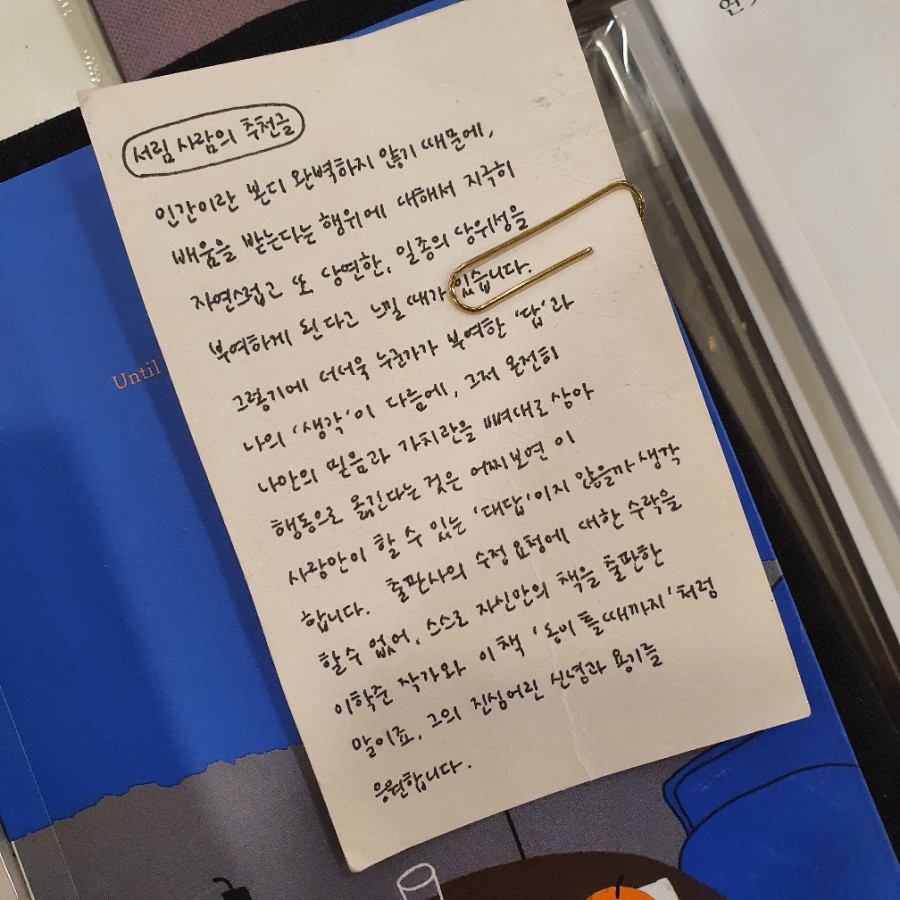 서림 사람의 추천글
인간이란 본디 완벽하지 않기 때문에,
배움을 받는다는 행위에 대해서 지극히
자연스럽고 또 당연한, 일종의 당위성을
부여하게 된다고 느낄 때가 있습니다.
그렇기에 더더욱 누군가가 부여한 '답'과
나의 '생각'이 다름에, 그저 온전히
나만의 믿음과 가치관을 뼈대로 삼아
행동으로 옮긴다는 것은 어찌보면 이
사람만이 할 수 있는 '대답'이지 않을까 생각
합니다. 출판사의 수정 요청에 대한 수락을
할 수 없어, 스스로 자신만의 책을 출판한
이학준 작가와 이 책 '동이 틀 때까지'처럼
말이죠. 그의 진심어린 신념과 용기를
응원합니다.
Until